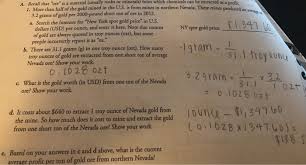 a. Recall that "ore" is a material (usually rocks or minerals) from which chemicals can be extracted at a profit.
2. More than half of the gold in the U.S. is from mines in northern Nevada. These mines produced an average
3.2 grams of gold per 2000-pound short ton of ore in 2012.
a. Search the Internet for "New York spot gold price" in U.S.
dollars (USD) per ounce, and enter it here. Note that ounces
of gold are always quoted in troy ounces (ozt), but some
people incorrectly report it as "oz."
NY spot gold price $1,347.60
b. There are 31.1 grams (g) in one troy ounce (ozt). How many
troy ounces of gold are extracted from one short ton of average
Nevada ore? Show your work.
0.1028 ozt
1 gram = 1/31.1 troy ounce
3.2 gram = 1/31.1 x 3.2
= 0.1028 ozt
c. What is the gold worth (in USD) from one ton of the Nevada
ore? Show your work.
1 ounce = $1,347.60
(0.1028 x 1347.60) =
$138.5
d. It costs about $640 to extract 1 troy ounce of Nevada gold from
the mine. So how much does it cost to mine and extract the gold
from one short ton of the Nevada ore? Show your work
e. Based on your answers in c and d above, what is the current
average profit per ton of gold ore from northern Nevada?